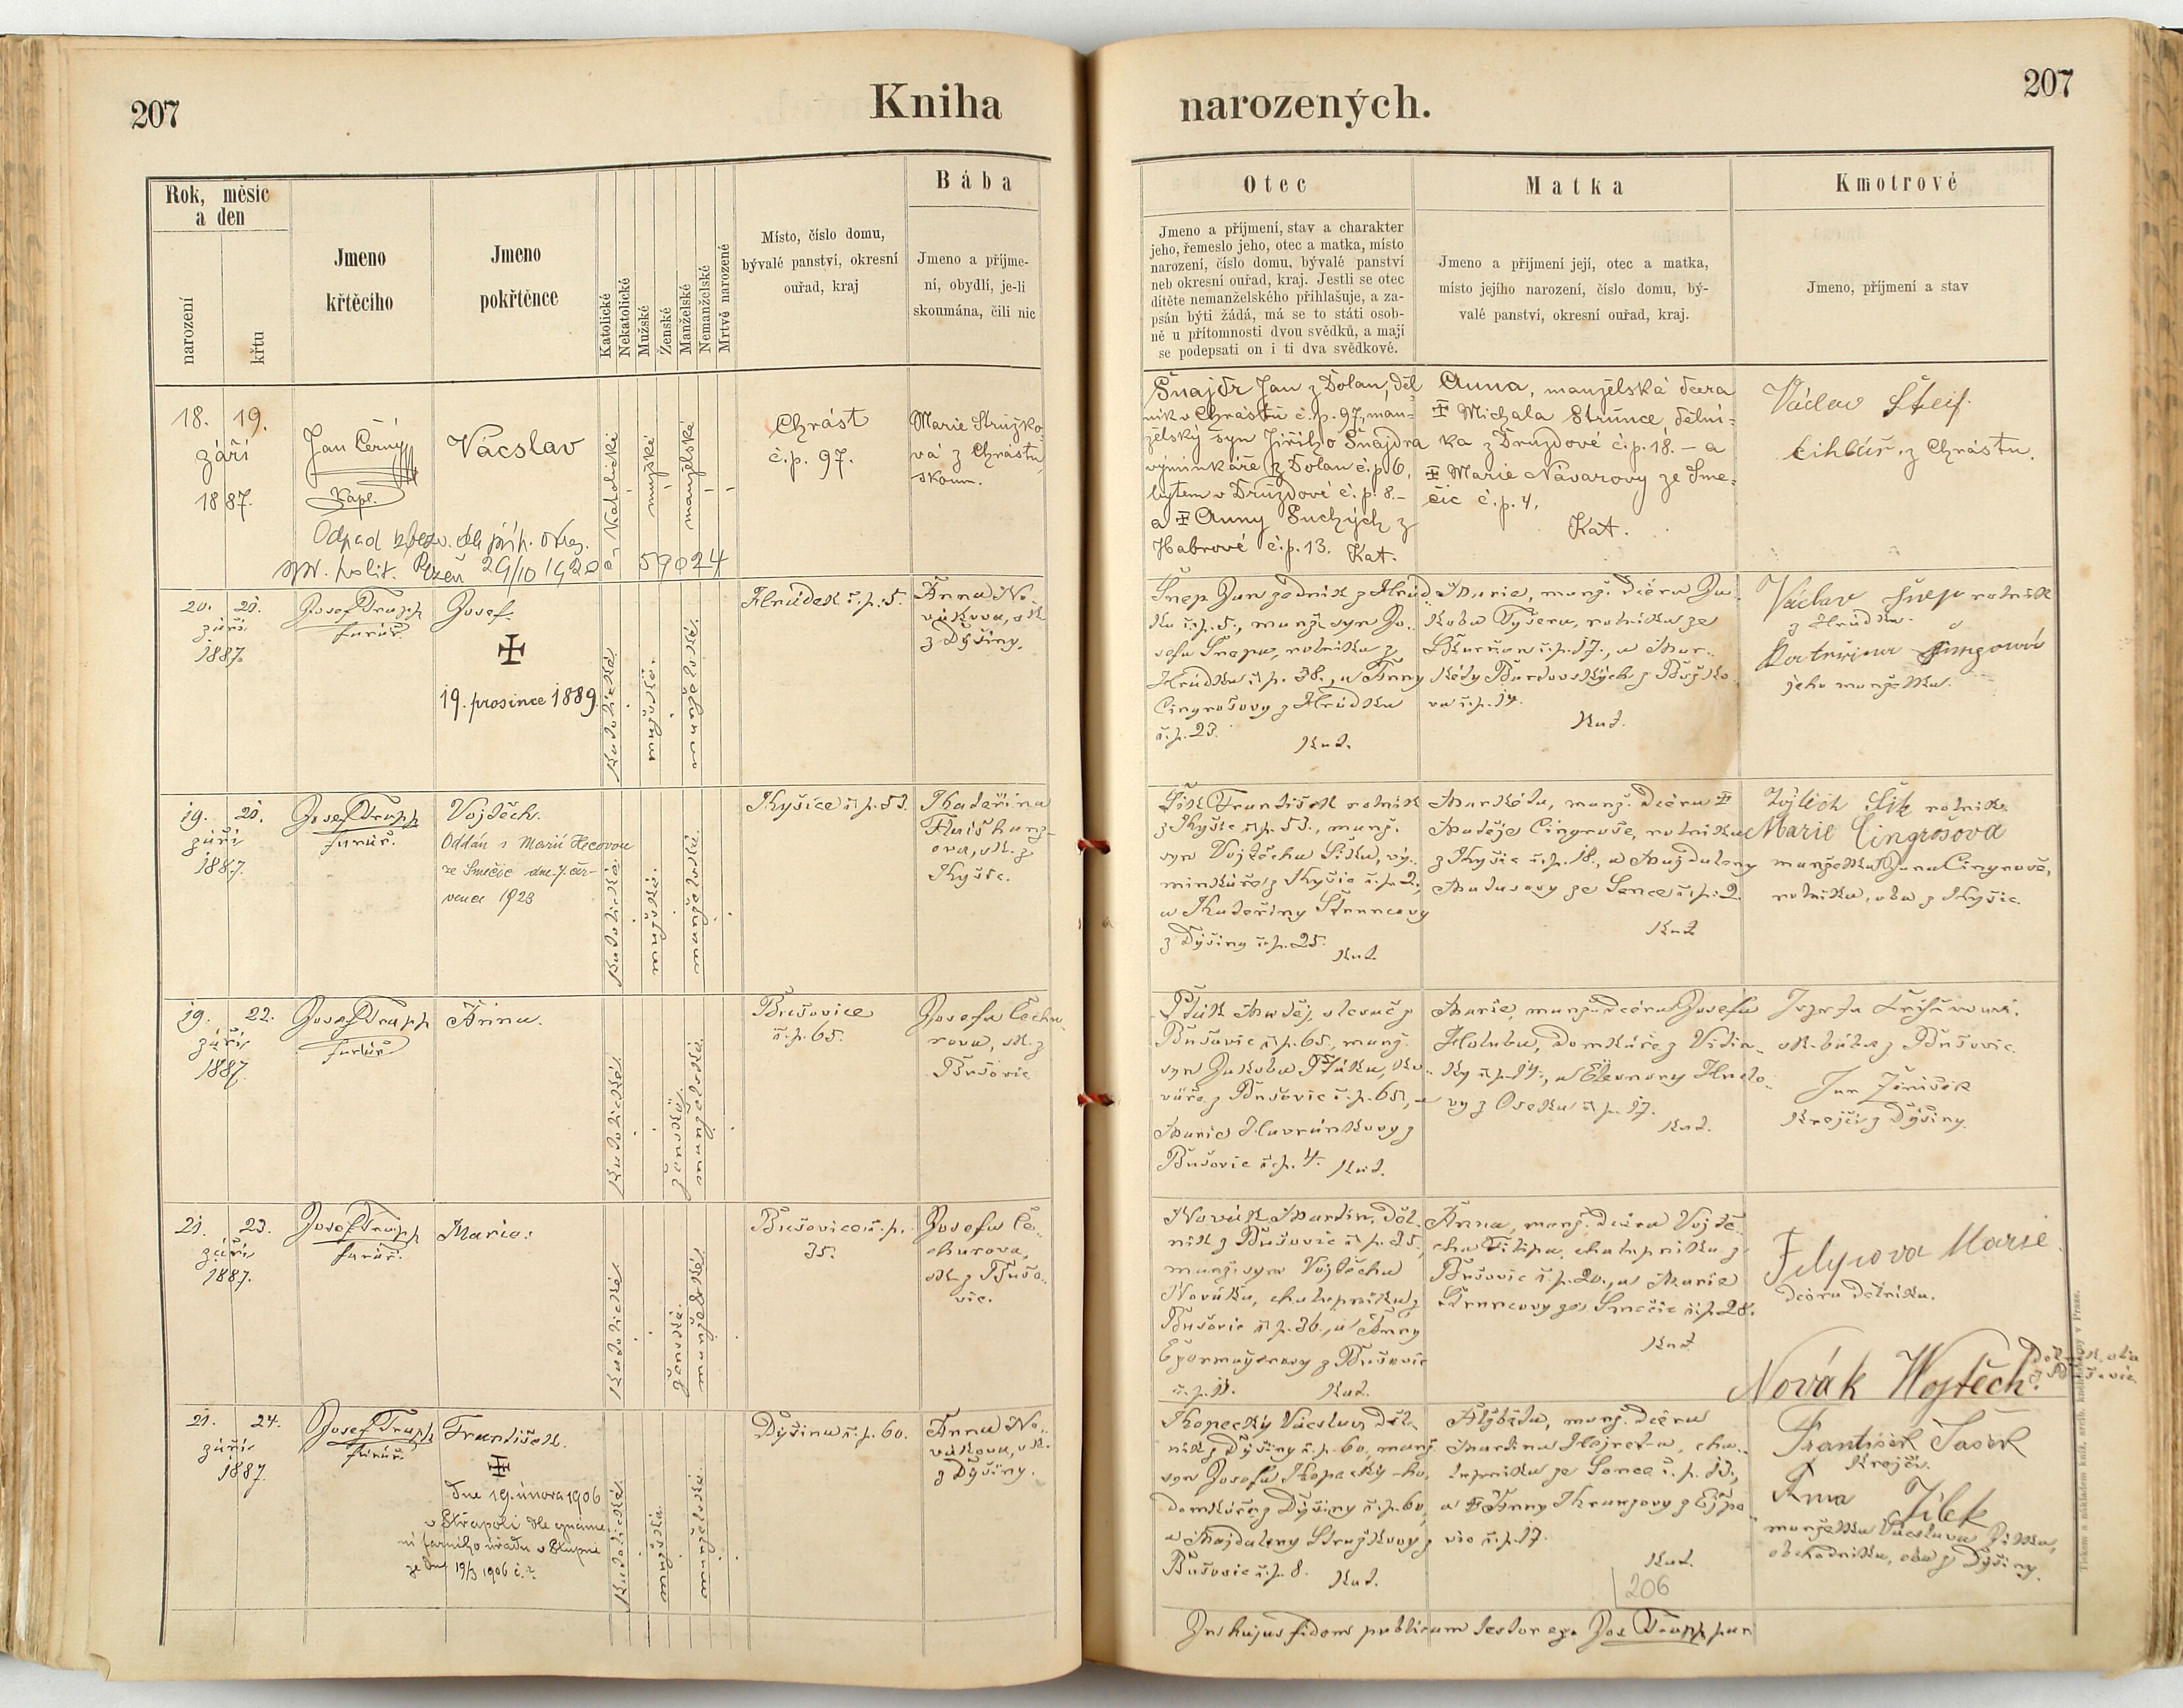 207
Kniha
narozených.
207
Rok, měsíc
a den
narození
křtu
Jmeno
křtěcího
Jmeno
pokřtěnce
Katolické
Nekatolické
Mužské
Ženské
Manželské
Nemanželské
Mrtvě narozené
Místo, číslo domu,
bývalé panství, okresní
ouřad, kraj
Bába
Jmeno a příjme-
ní, obydlí, je-li
skoumána, čili nic
Otec
Jmeno a příjmení, stav a charakter
jeho, řemeslo jeho, otec a matka, místo
narození, číslo domu, bývalé panství
neb okresní ouřad, kraj. Jestli se otec
dítěte nemanželského přihlašuje, a za-
psán býti žádá, má se to státi osob-
ně u přítomnosti dvou svědků, a mají
se podepsati on i ti dva svědkové.
Matka
Jmeno a přijmení její, otec a matka,
místo jejího narození, číslo domu, bý-
valé panství, okresní ouřad, kraj.
Kmotrové
Jmeno, příjmení a stav
18. 19.
září
1887.
Jan Černý
Kapl.
Vácslav
Katolické
mužské
manželské
Chrást
č.p. 97.
Marie Stružko-
vá z Chrástu,
skoum.
Odpad
spr. polit. Plzeň 29/10 1920 59024
Šnajdr Jan z Dolan, děl
ník v Chrástu č.p. 97., man-
želský syn Jiřího Šnajdra
výminkáře z Dolan č.p. 6,
bytem v Druzdové č.p. 8.-
a Anny Suchých z
Habrové č.p. 13. Kat.
Anna, manželská dcera
Michala Strunce, dělní-
ka z Druzdové č.p. 18. - a
Marie Návarovy ze Sme-
čic č.p. 4.
Kat.
Václav Šteif
cihlář z Chrástu.
20. 21.
září
1887.
Josef Trapp
farář.
Josef.
19. prosince 1889.
katolické
mužské.
manželské.
Hrádek č.p. 5.
Anna No-
váková, sk.
z Dýšiny.
Šnep Jan zedník z Hrád-
ku č.p. 5., manž. syn Jo-
sefa Šnepa, rolníka z
Hrádku č.p. 38., a Anny
Cingrošovy z Hrádku
č.p. 23.
Kat.
Marie, manž. dcera Ja-
koba Tyšera, rolníka ze
č.p. 17., a Mar-
kéty
č.p. 14.
Kat.
Václav Šnep rolník
z Hrádku.
Kateřina
jeho manželka.
19. 21.
září
1887.
Josef Trapp
farář.
Vojtěch.
Oddán s Marií Hecovou
ze Smečic dne 7. čer-
vence 1923
katolické.
mužské.
manželské.
Kyšice č.p. 53.
Kateřina
ova, sk. z
Kyšic.
Šik František rolník
z Kyšic č.p. 53., manž.
syn Vojtěcha Šika, vý-
minkáře z Kyšic č.p. 2.,
a Kateřiny Štruncovy
z Dýšiny č.p. 25.
Kat.
Markéta, manž. dcera
Matěje Cingroše, rolníka
z Kyšic č.p. 18., a Magdaleny
Matasovy ze Sence č.p. 2.
Kat.
Vojtěch Šik rolník.
Marie Cingrošova
manželka Jana Cingroše,
rolníka, oba z Kyšic.
19. 22.
září
1887.
Josef Trapp
farář
Anna.
katolické.
ženské.
manželské.
Bušovice
č.p. 65.
Josefa Čecha-
rova, sk. z
Bušovic
Pták Matěj, slevač z
Bušovic č.p. 65., manž.
syn Jakoba Ptáka, ko-
váře z Bušovic č.p. 65., a
Marie Havránkovy z
Bušovic č.p. 4. Kat.
Marie, manž. dcera Josefa
Holuba, domkáře z Vitin-
ky č.p. 14., a Eleonory
vy z Oseka č.p. 17.
Kat.
Josefa
sk. bába z Bušovic.
Jan
krejčí z Dýšiny.
21. 23.
září
1887.
Josef Trapp
farář.
Marie.
katolické.
ženské.
manželské
Bušovice č.p.
35.
Josefa Če-
charova,
sk. z Bušo-
vic.
Novák Martin, děl-
ník z Bušovic č.p. 35.,
manž. syn Vojtěcha
Nováka, chalupníka z
Bušovic č.p. 36., a Anny
z Bušovic
č.p. 11. Kat.
Anna, manž. dcera Vojtě-
cha Filipa, chalupníka z
Bušovic č.p. 20., a Marie
Štruncovy ze Smečic č.p. 28.
Kat.
Filipova Marie
dcera dělníka.
Novák Wojtěch.
dělník, oba
z Bušovic
21. 24.
září
1887
Josef Trapp
farář
František.
Dne 19. února 1906
v Střapoli dle oznáme-
ní farního úřadu v Stupni
ze dne 19/3 1906 č.
katolické.
mužské.
manželské.
Dýšina č.p. 60.
Anna No-
váková, sk.
z Dýšiny.
Kopecký Vácslav, děl-
ník z Dýšiny č.p. 60., manž.
syn Josefa Kopeckýho,
domkáře z Dýšiny č.p. 60.,
a Magdaleny Stružkovy z
Bušovic č.p. 8. Kat.
Alžběta, manž. dcera
Martina cha-
lupníka ze Sence č.p. 13.,
a Anny z Ejpo-
vic č.p. 17.
Kat.
206
František Šašek
krejčí.
Anna Jílek
manželka Václava Jílka,
obchodníka, oba z Dýšiny.
In hujus fidem publicam testor ego Jos. Trapp par
Tiskem a nákladem knih. arcib. knihtiskárny v Praze.